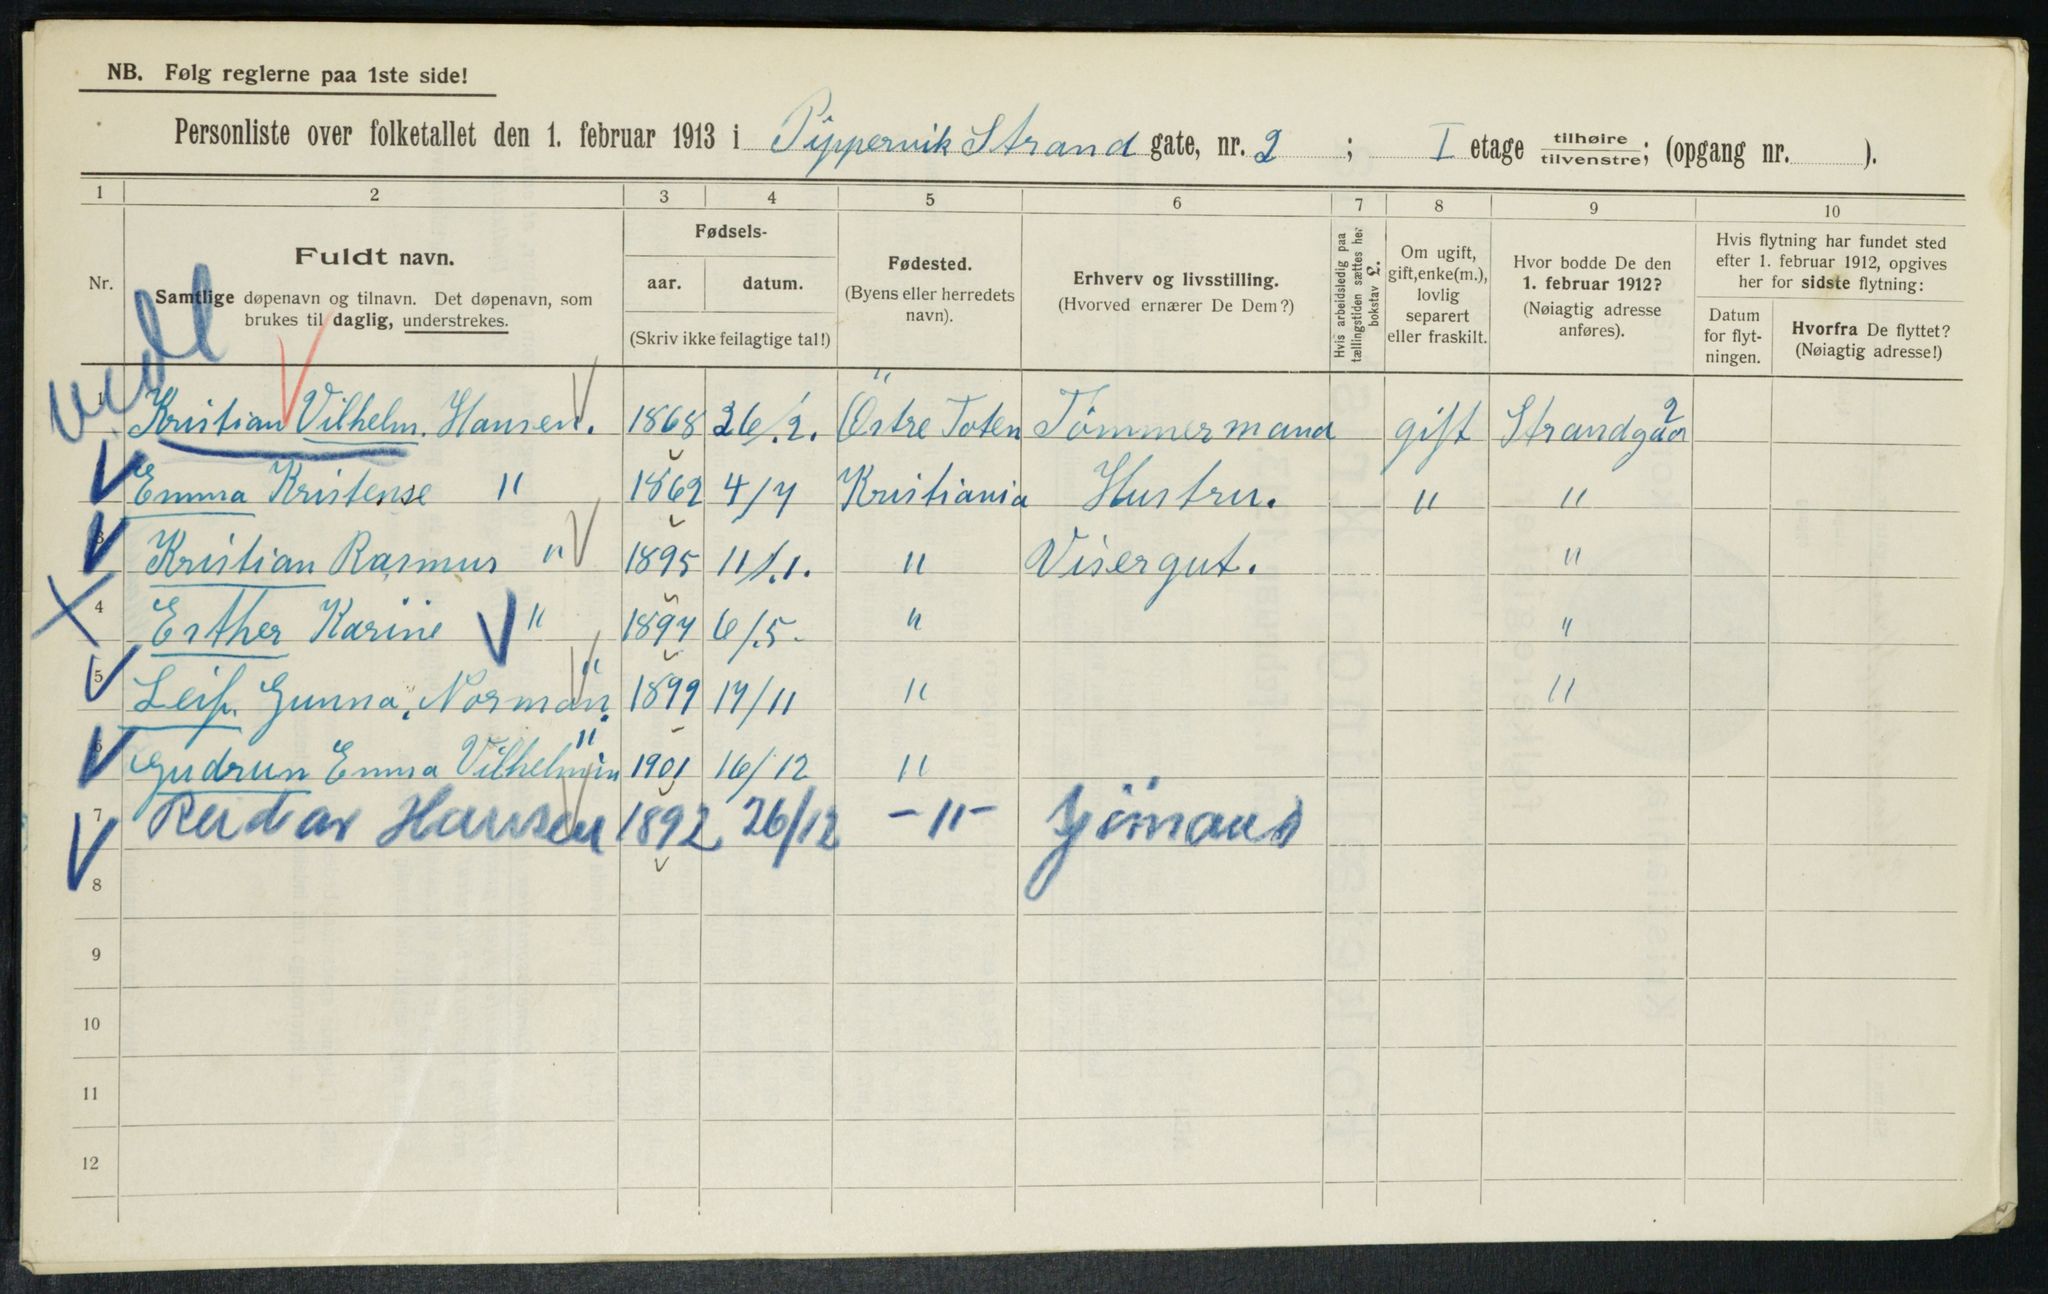 NB. Følg reglerne paa 1ste side!
Personliste over folketallet den 1. februar 1913 i Pippervik Strand gate, nr. 2 ; I etage tilhøire/tilvenstre; (opgang nr. ).
1 2 3 4 5 6 7 8 9 10
Nr.
Fuldt navn.
Samtlige døpenavn og tilnavn. Det døpenavn, som
brukes til daglig, understrekes.
Fødsels-
aar. datum.
(Skriv ikke feilagtige tal!)
Fødested.
(Byens eller herredets
navn).
Erhverv og livsstilling.
(Hvorved ernærer De Dem?)
Hvis arbeidsledig paa
tællingstiden sættes her
bokstav L.
Om ugift,
gift, enke(m.),
lovlig
separert
eller fraskilt.
Hvor bodde De den
1. februar 1912?
(Nøiagtig adresse
anføres).
Hvis flytning har fundet sted
efter 1. februar 1912, opgives
her for sidste flytning:
Datum
for flyt-
ningen.
Hvorfra De flyttet?
(Nøiagtig adresse!)
1 Kristian Vilhelm. Hansen. 1868 26/.2. Östre Toten Tömmermand gift Strandgad 2
Emma Kristense " 1862 4/7 Kristiania Hustru. " "
3 Kristian Rasmus " 1895 11/.1. " Visergut. "
4 Esther Karine " 1897 6/.5- " "
5 Leif. Gunna. Norman. " 1899 17/11 " "
6 Gudrun Emma Vilhelmin " 1901 16/12 "
7 Reidar Hansen 1892 26/12 -"- Sjömand
8
9
10
11
12